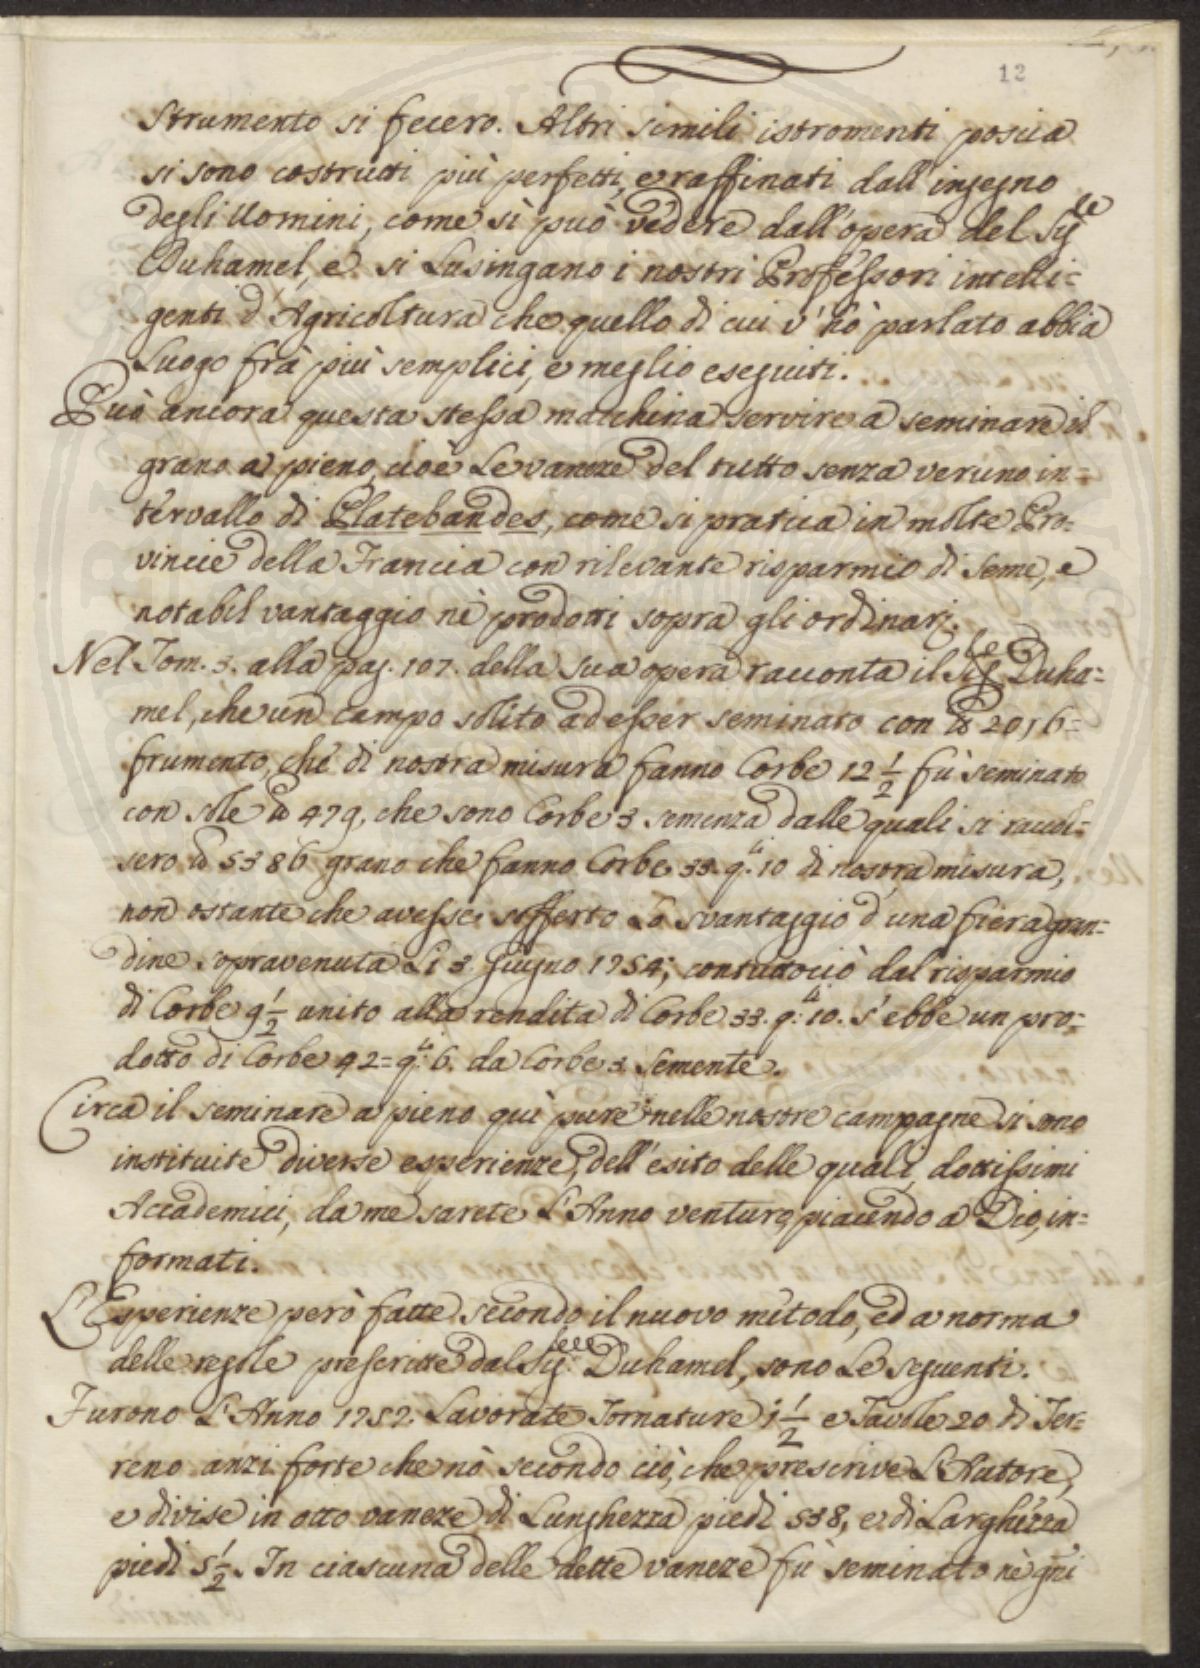 12
strumento si fecero. Altri simili istromenti poscia
si sono costrutti più perfetti, e raffinati dall'ingegno
degli Uomini, come si può vedere dall'opera del Sig.re
Duhamel, e si Lusingano i nostri Professori intelli=
genti d'Agricoltura che quello di cui v'hò parlato abbia
Luogo frà più semplici, e meglio eseguiti.
Può ancora questa stessa macchina servire a seminare il
grano a pieno, cioè Le vaneze del tutto senza veruno in=
tervallo di Platebandes, come si pratica in molte Pro=
vincie della Francia con rilevante risparmio di seme, e
notabil vantaggio nè prodotti sopra gli ordinarj.
Nel Tom. 3. alla pag. 107. della sua opera racconta il Sig.re Duha=
mel, che un campo solito ad esser seminato con lb 2016=
frumento, che di nostra misura fanno Corbe 12 1/2 fù seminato
con sole lb 479, che sono Corbe 3 semenza dalle quali si raccol=
sero lb 5386 grano che fanno Corbe 33. q.li 10 di nostra misura,
non ostante che avesse sofferto Lo svantaggio d'una fiera gran=
dine sopravenuta Li 3 Giugno 1754; contuttociò dal risparmio
di Corbe 9 1/2 unito alla rendita di Corbe 33. q.li 10. s'ebbe un pro=
dotto di Corbe 42= q.li 6. da Corbe 3 Semente.
Circa il seminare a pieno quì pure nelle nostre campagne si sono
instituite diverse esperienze, dell'esito delle quali, dottissimi
Accademici, da me sarete L'Anno venturo, piacendo a Dio, in=
formati.
L'Esperienze però fatte secondo il nuovo mètodo, ed a norma
delle regole prescritte dal Sig.re Duhamel, sono Le seguenti.
Furono L'Anno 1757. Lavorate Tornature 1 1/2 e Tavole 20 di Ter=
reno anzi forte che nò secondo ciò, che prescrive L'Autore,
e divise in otto vaneze di Lunghezza piedi 538, e di Larghezza
piedi 5 1/2. In ciascuna delle dette vaneze fù seminato nè gni